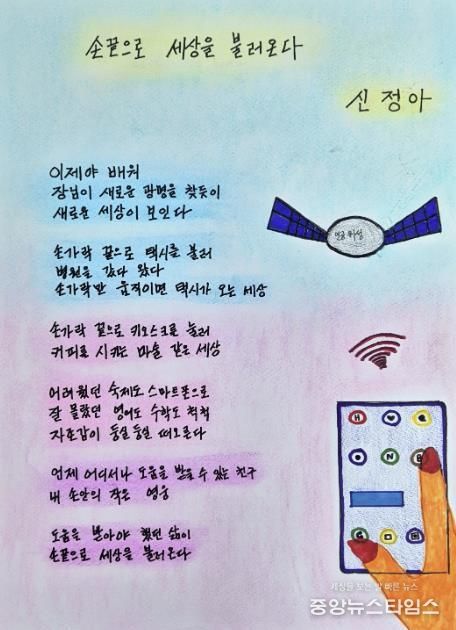 손끝으로 세상을 불러온다
신정아
이제야 배워
장님이 새로운 광명을 찾듯이
새로운 세상이 보인다
손가락 끝으로 택시를 불러
병원을 갔다 왔다
손가락만 움직이면 택시가 오는 세상
손가락 끝으로 키오스크를 눌러
커피를 시키는 마술 같은 세상
어려웠던 숙제도 스마트폰으로
잘 몰랐던 영어도 수학도 척척
자존감이 둥실 둥실 떠오른다
언제 어디서나 도움을 받을 수 있는 친구
내 손안의 작은 영웅
도움을 받아야 했던 삶이
손끝으로 세상을 불러온다
인공위성
N
세상을 보는 발 빠른 뉴스
중앙뉴스타임스